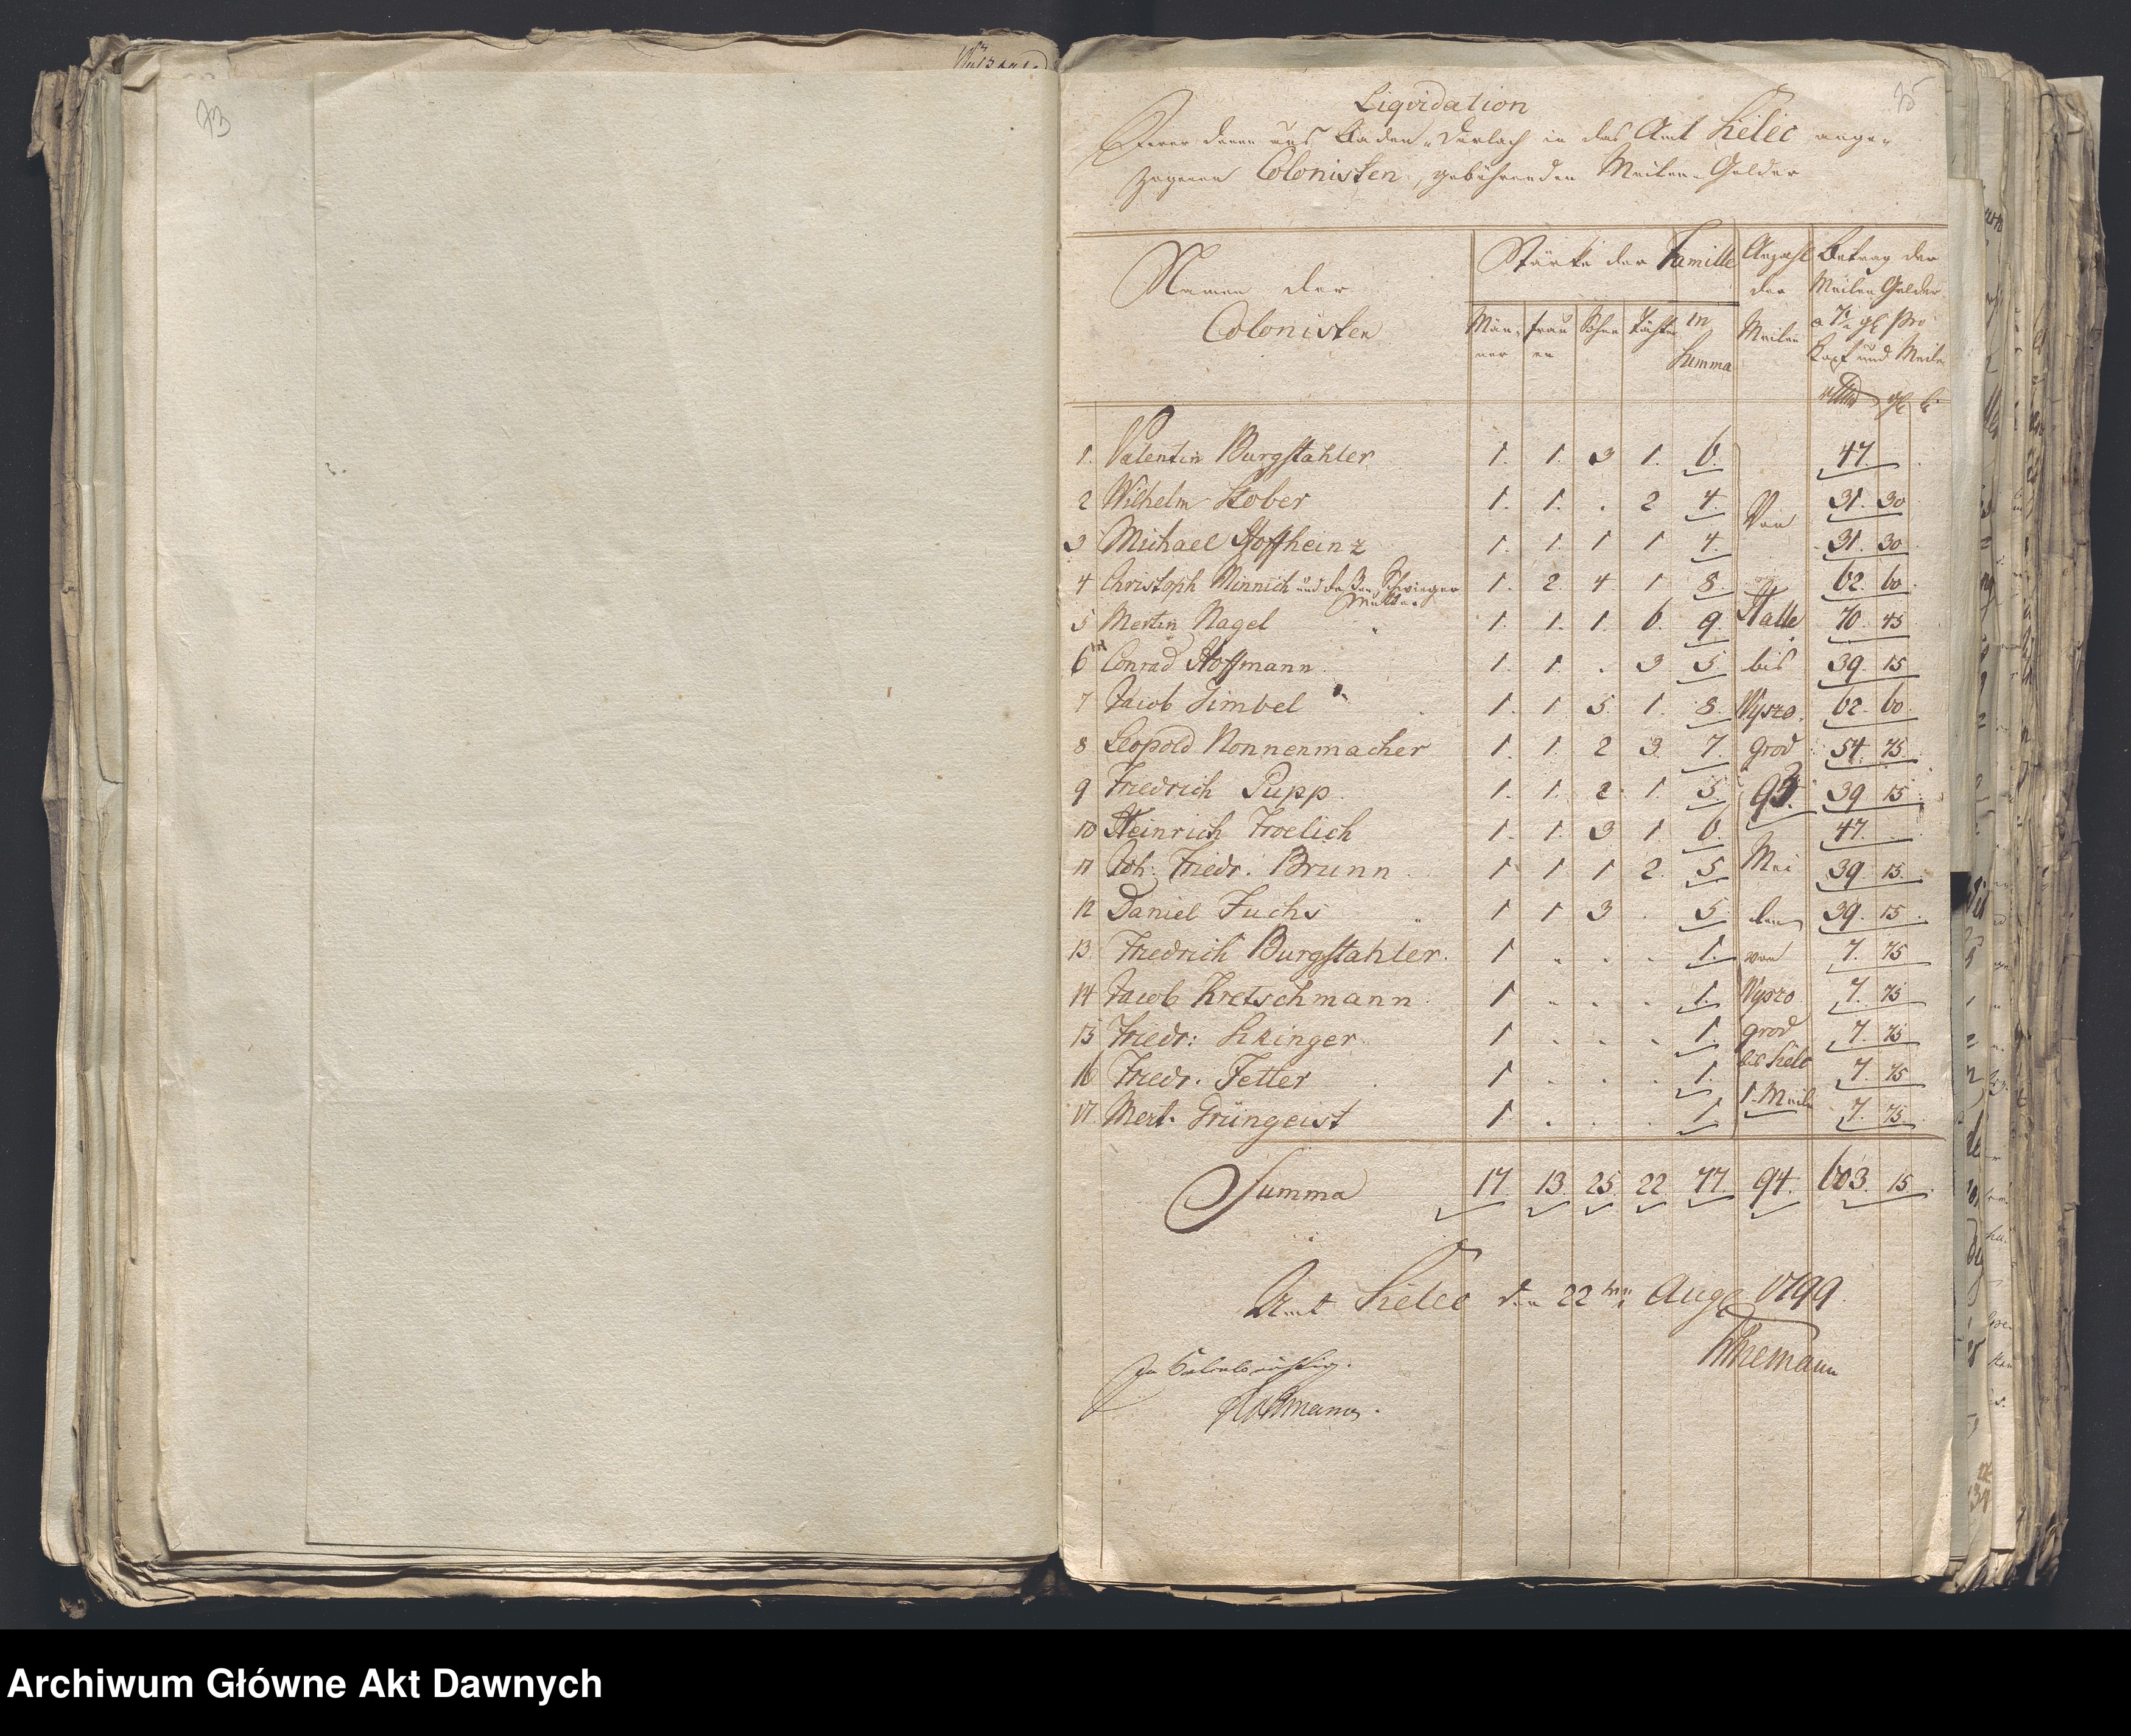 73
75
Liqvidation
Derer denen aus Baden-Durlach in das Amt Kielec ange-
zogenen Colonisten, gebührenden Meilen-Gelder
Namen der
Colonisten
Stärke der Famille
Män-
ner
Frau
en
Söhne
Töchter
in
Summa
Anzahl
der
Meilen
Betrag der
Meilen Gelder
Kopf und Meile
1. Valentin Burgstahler 1. 1. 3 1. 6. 47.
2 Wilhelm Stober 1. 1. . 2 4. Von 31. 30
3 Michael Hoffheinz 1. 1. 1 1 4. 31. 30
4 Christoph Minnich und deßen Schwieger 1. 2. 4. 1 8. 62. 60
Mutter
5 Mertin Nagel 1. 1. 1. 6. 9. Halle 70. 45
6 Conrad Hoffmann 1. 1. . 3 5. bis 39. 15
7 Jacob Zimbel 1. 1 5. 1. 8. Wyszo- 62. 60
8 Leopold Nonnenmacher 1. 1. 2 3. 7 grod 54. 75
9 Friedrich Pupp 1. 1. 2 1. 5. 93. 39 15
10 Heinrich Froelich 1. 1. 3 1. 6. 47.
11 Joh: Friedr. Brunn 1 1 1 2. 5. Mei 39. 15.
12 Daniel Fuchs 1 1 3 . 5. len 39. 15
13. Friedrich Burgstahler. 1 . . . 1. von 7. 75
14 Jacob Kretschmann 1 . . . 1. Wyszo 7. 75
15 Friedr: 1 . . . 1. grod 7. 75
16 Friedr. Fetter 1 . . . 1. bis Kielc 7. 75
17 Mert. Grüngeist 1 . . . 1. 1. Meile 7. 75
Summa 17. 13. 25. 22. 77. 94. 603. 15
Amt Kielec den 22ten Aug. 1799.
In Calculo richtig.
Archiwum Główne Akt Dawnych